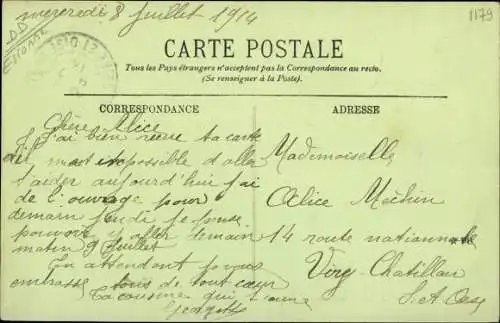 mercredi 8 Juillet 1914
1179
DD
Essonne
CARTE POSTALE
Tous les Pays étrangers n'acceptent pas la Correspondance au recto.
(Se renseigner à la Poste).
CORRESPONDANCE
Chère Alice
J'ai bien reçue ta carte
impossible d'aller
t'aider aujourd'hui j'ai
de l'ouvrage pour
demain jeudi je pense
pouvoir y aller demain
matin 9 Juillet
En attendant je vous
embrasse tous de tout cœur
Ta cousine qui t'aime
ADRESSE
Mademoiselle
Alice Méchin
14 route nationale
Viry-Chatillon
S. et Oise